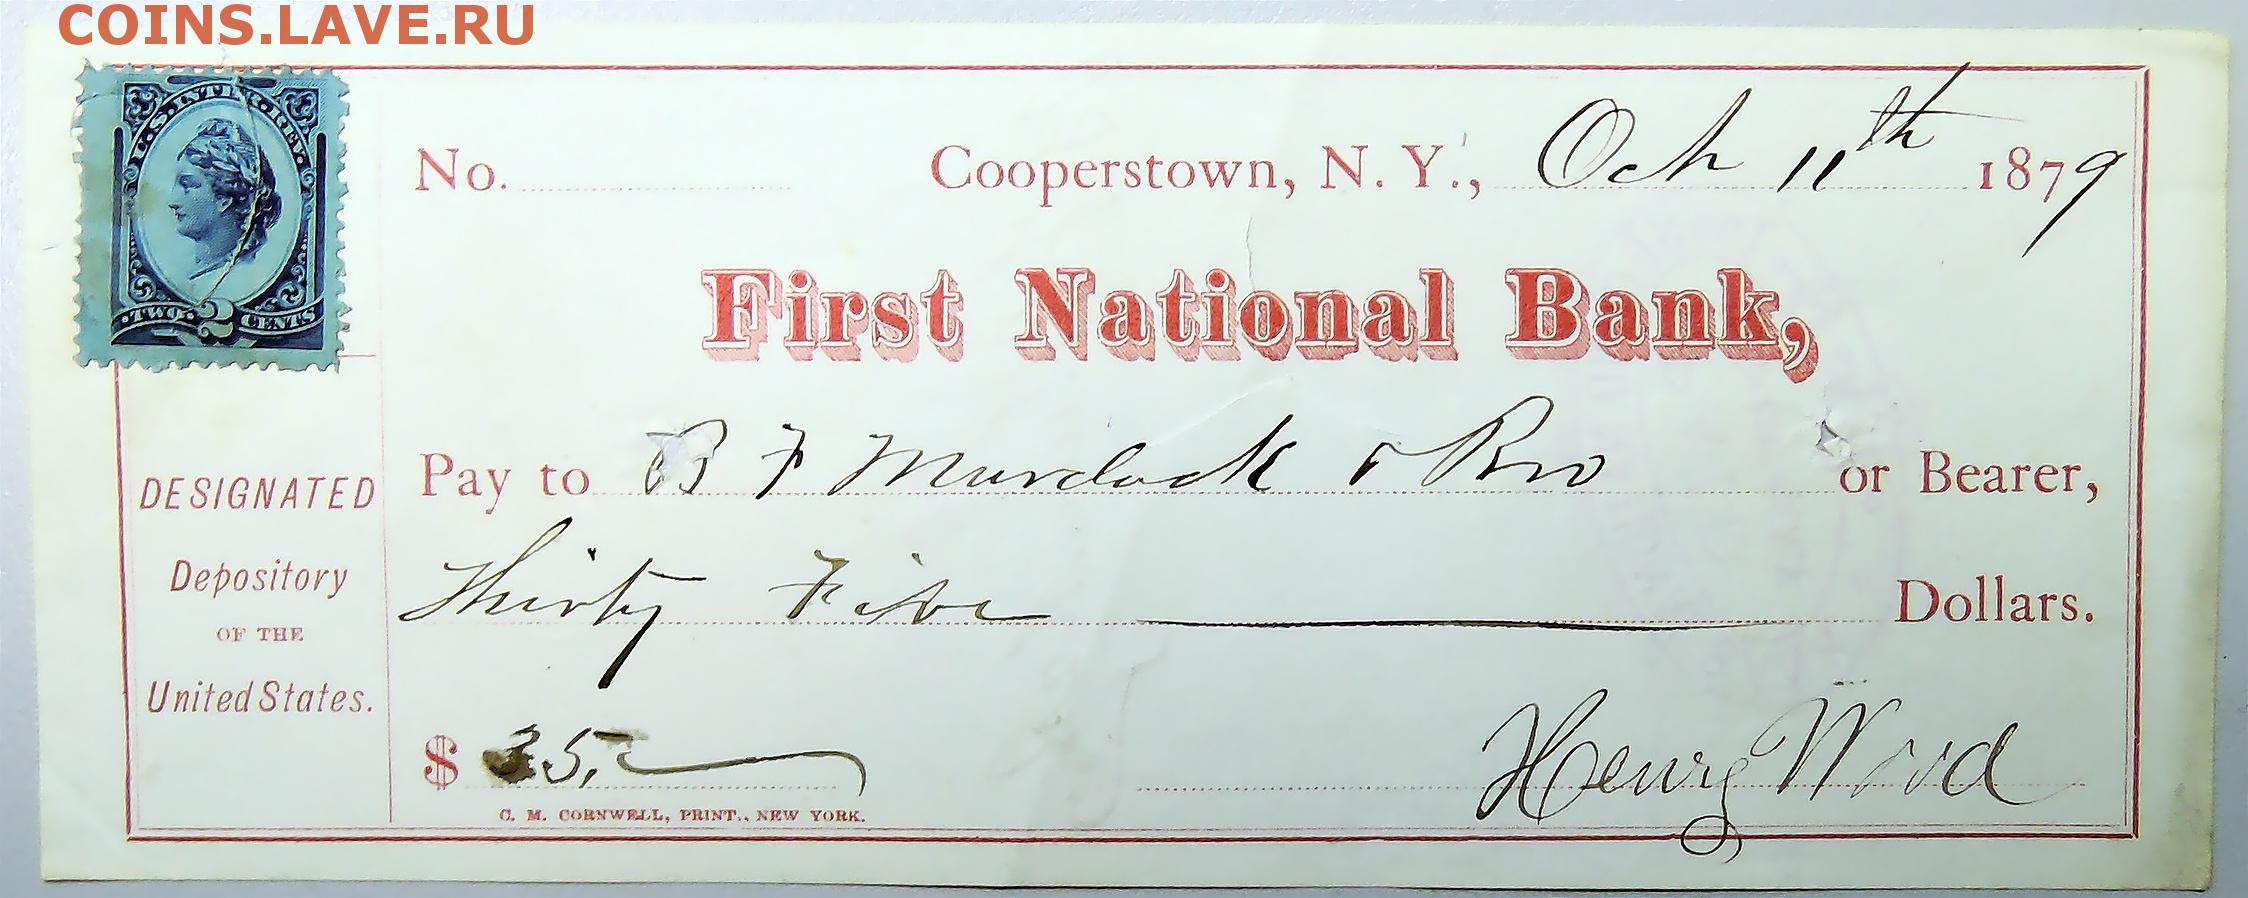 COINS.LAVE.RU
U.S. INTER. REV.
TWO 2 CENTS
No. Cooperstown, N. Y., Oct 11th 1879
First National Bank,
Pay to B F Murdock & Bro or Bearer,
Thirty Five Dollars.
$ 35,
Henry Wood
C. M. CORNWELL, PRINT., NEW YORK.
DESIGNATED
Depository
OF THE
United States.